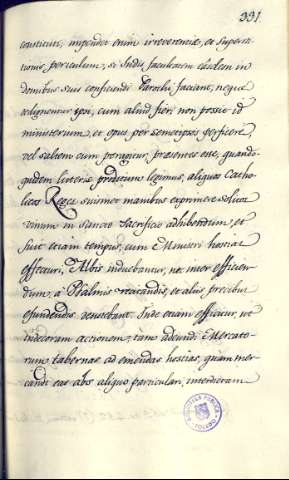 331.
conticiri, impendet enim irreverentiæ, et supersti
tionis periculum, si Indis, facultatem eisdem in
domibus suis conficiendi Parochi faciant, neque
dedignentur ipsi, cum aliud fieri non possit id
ministerium, et opus per semetipsos perficere,
vel saltem cum peragitur, presentes esse, quando-
quidem litteris proditum legimus, aliquos Catho-
licos Reges suimet manibus exprimere solitos
vinum in Sancto Sacrificio adhibendum, et
fuit etiam tempus, cum Ministri hostias
effecturi, Albis induebantur, nec inter efficien
dum, a Psalmis recitandis, et aliis precibus
efundendis cessabant. Inde etiam efficitur, ut
indecoram actionem, tam adeundi Mercato-
rum tabernas ad emendas hostias, quam mer-
candi eas abs aliquo particulari, interdicam
BIBLIOTECA PUBLICA
TOLEDO